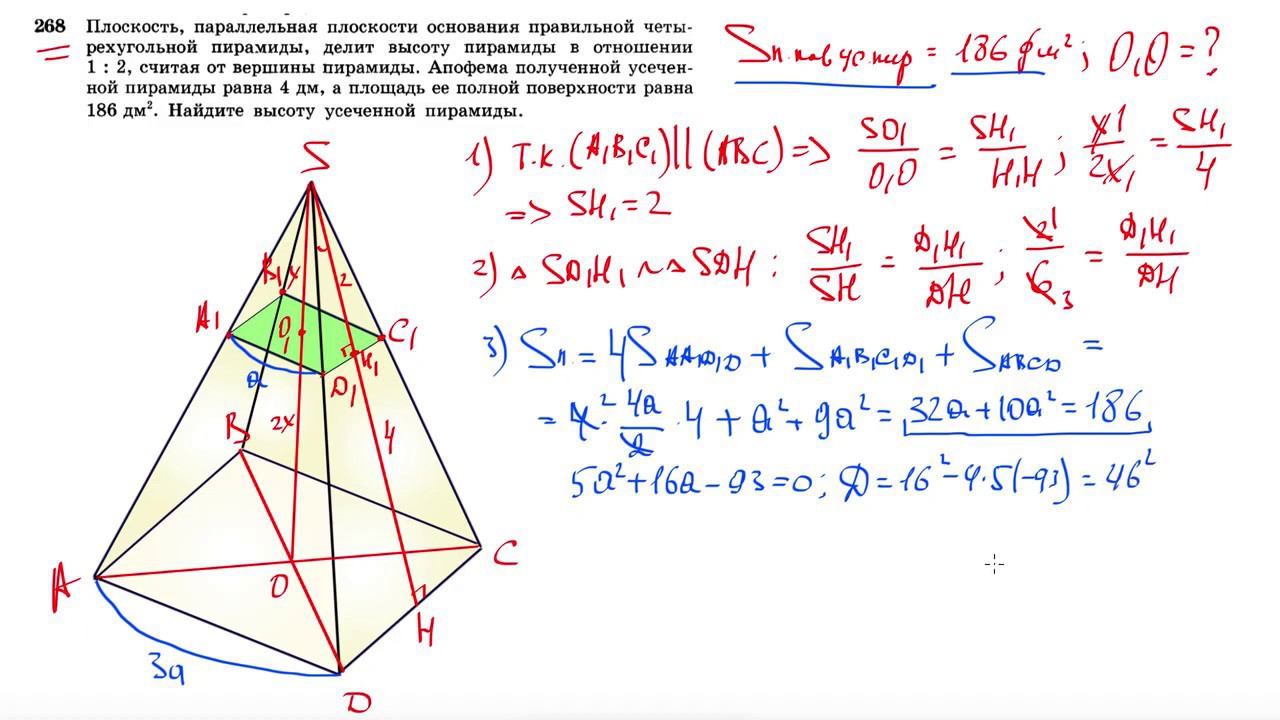 268 Плоскость, параллельная плоскости основания правильной четы-
рехугольной пирамиды, делит высоту пирамиды в отношении
1 : 2, считая от вершины пирамиды. Апофема полученной усечен-
ной пирамиды равна 4 дм, а площадь ее полной поверхности равна
186 дм². Найдите высоту усеченной пирамиды.
Sп.пов ус.пир = 186 дм²; O₁O = ?
1) Т.К. (A₁B₁C₁) || (ABC) => SO₁/O₁O = SH₁/H₁H; x1/2x1 = SH₁/4
=> SH₁ = 2
2) △ SD₁H₁ ~ △ SDH : SH₁/SH = D₁H₁/DH; 2 1/6 3 = D₁H₁/DH
3) Sп = 4S AA₁D₁D + S A₁B₁C₁D₁ + S ABCD =
= 4 2 · 4a/2 · 4 + a² + 9a² = 32a + 10a² = 186
5a² + 16a - 93 = 0; D = 16² - 4·5(-93) = 46²
S
B₁
x
2
A₁
O₁
C₁
H₁
a
D₁
B
2x
4
C
A
O
H
3a
D